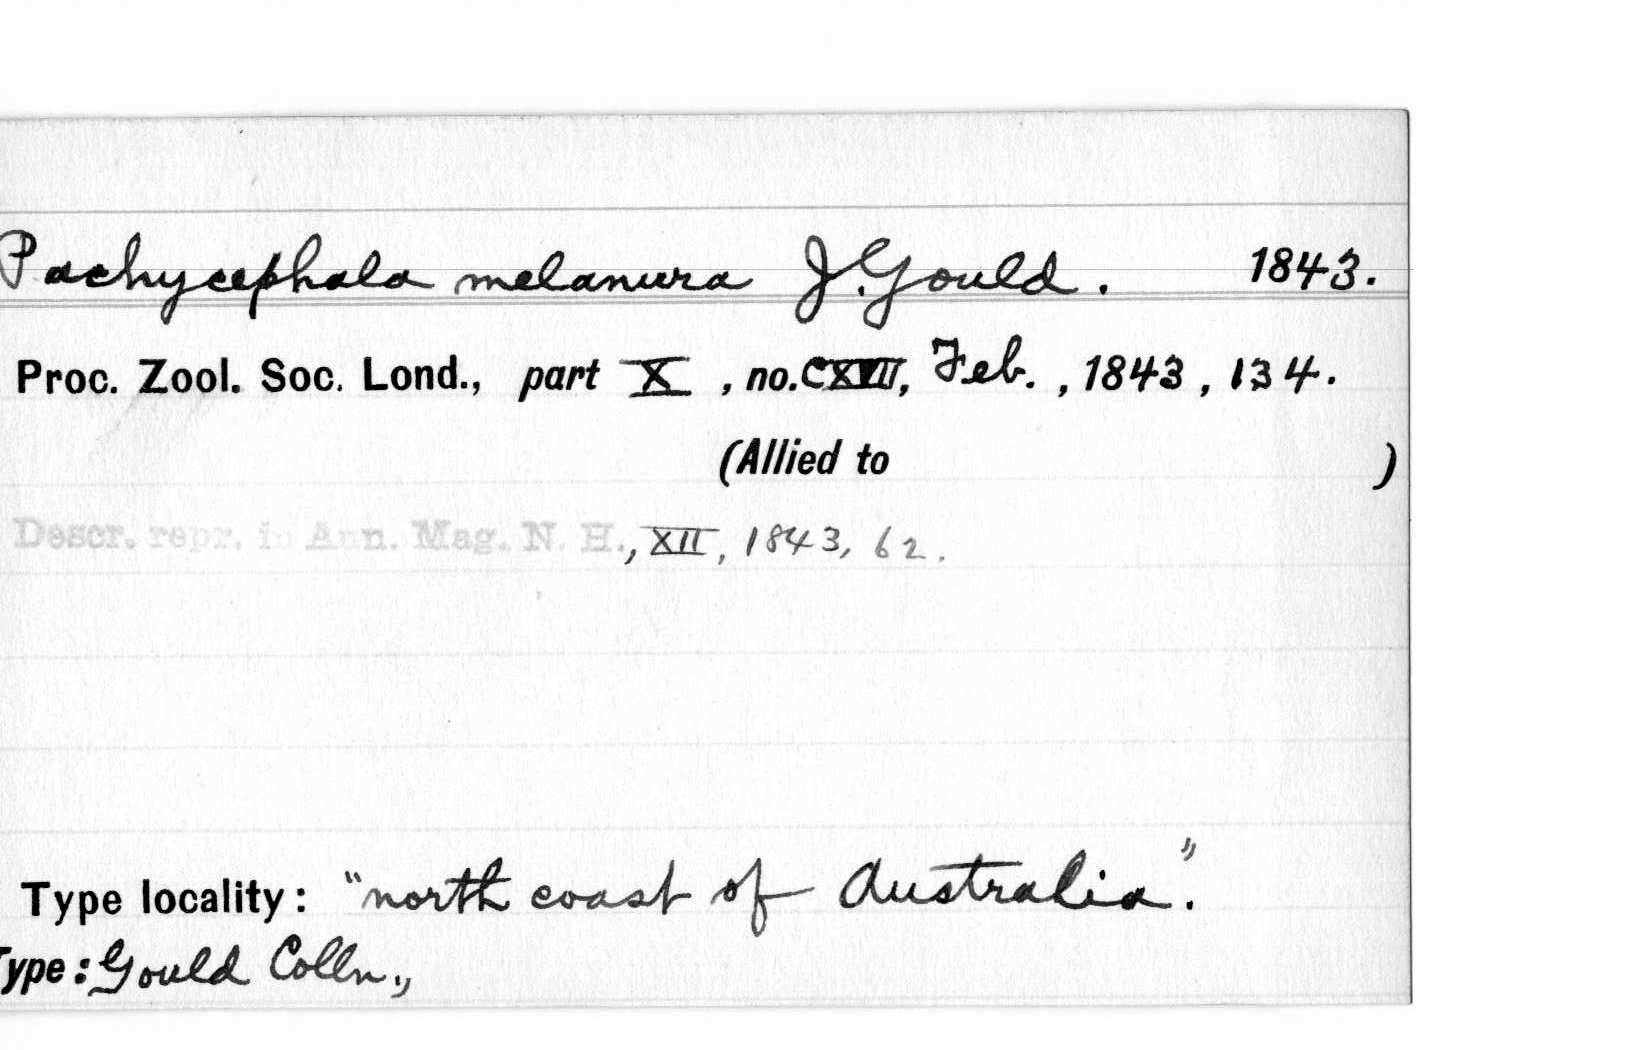 Pachycephala melanura J. Gould. 1843.
Proc. Zool. Soc. Lond., part X, no. CXVII, Feb., 1843, 134.
(Allied to )
Descr. repr. in Ann. Mag. N. H., XII, 1843, 62.
Type locality: "north coast of Australia".
Type: Gould Colln.,